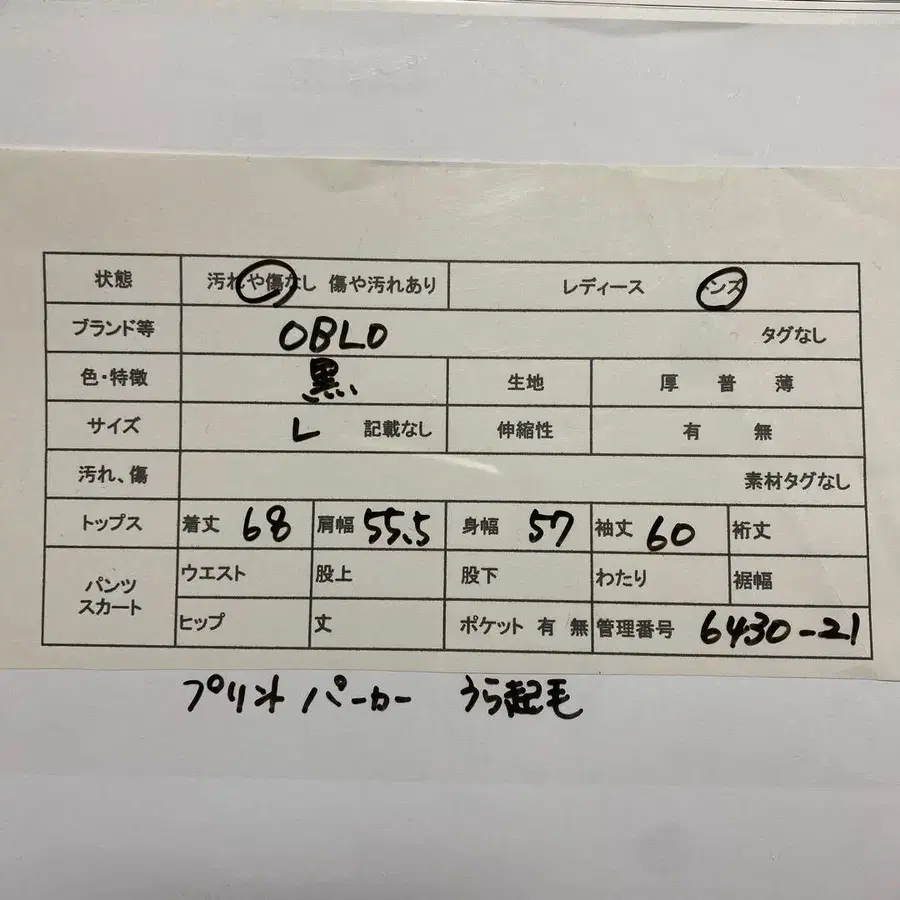 状態 汚れや傷なし 傷や汚れあり レディース メンズ
ブランド等 OBLO タグなし
色・特徴 黒 生地 厚 普 薄
サイズ L 記載なし 伸縮性 有 無
汚れ、傷 素材タグなし
トップス 着丈 68 肩幅 55.5 身幅 57 袖丈 60 裄丈
パンツ スカート
ウエスト 股上 股下 わたり 裾幅
ヒップ 丈 ポケット 有 無 管理番号 6430-21
プリント パーカー うら起毛